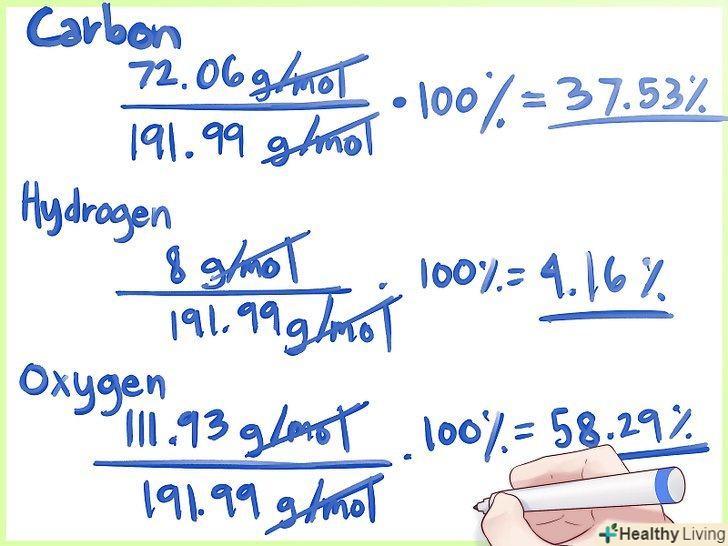 Carbon
72.06 g/mol
191.99 g/mol
· 100% = 37.53%
Hydrogen
8 g/mol
191.99 g/mol
· 100% = 4.16%
Oxygen
111.93 g/mol
191.99 g/mol
· 100% = 58.29%
Healthy Living